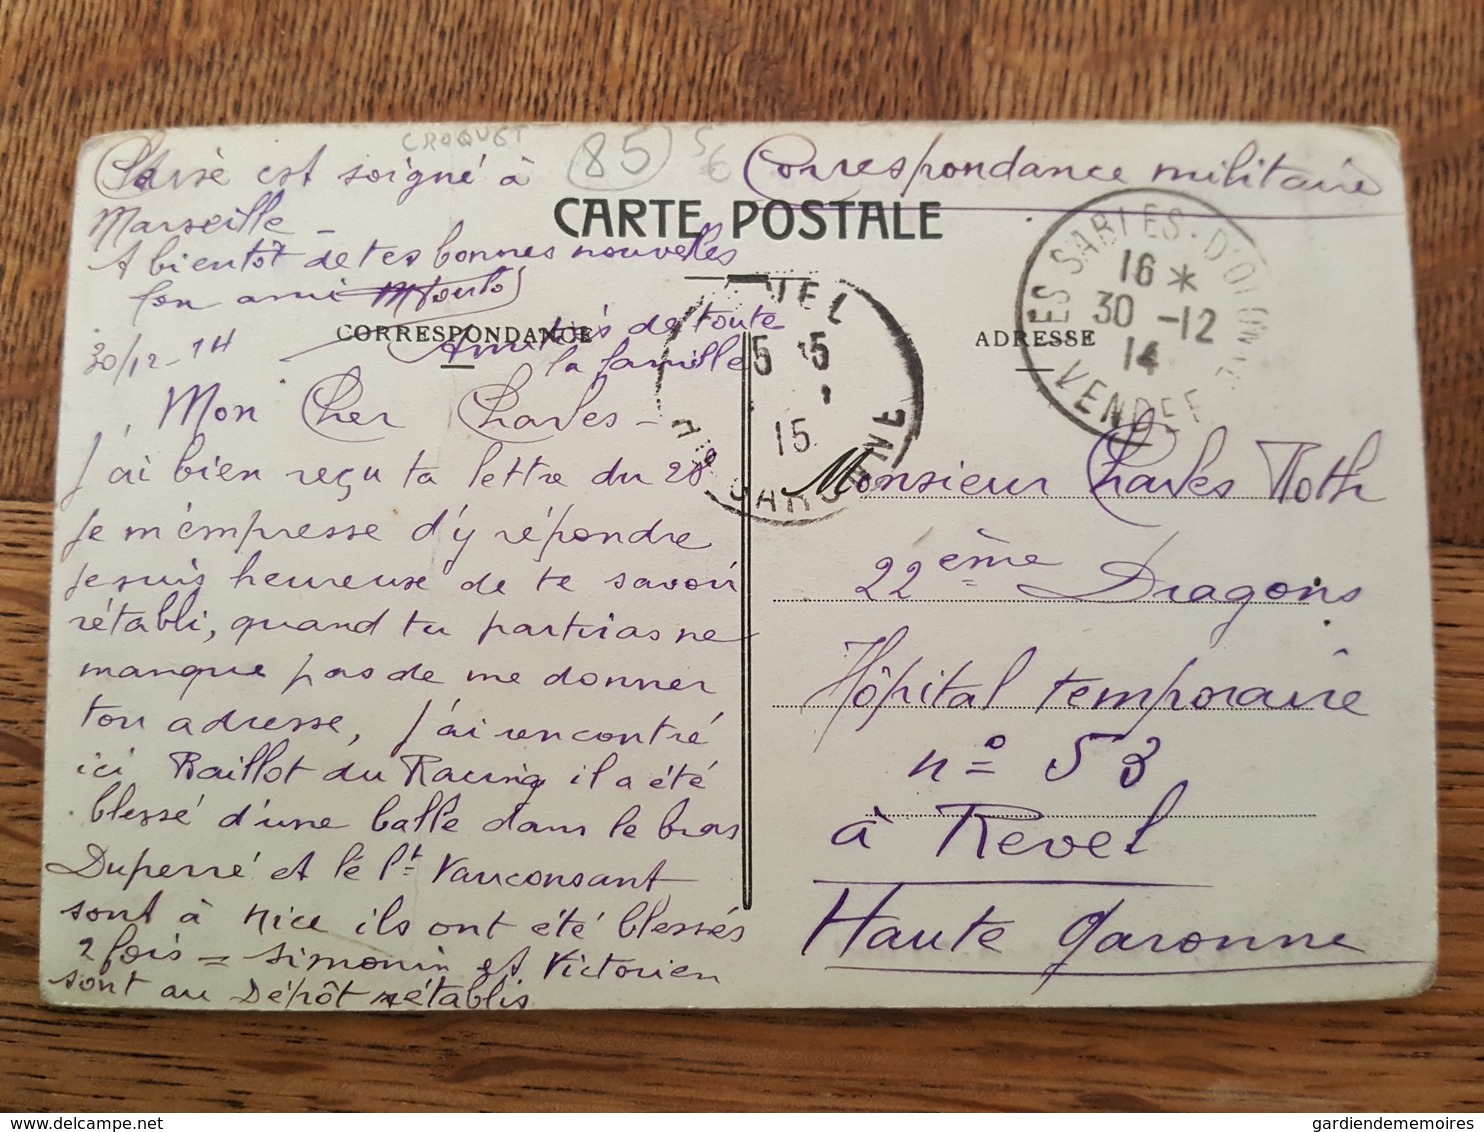 CROQUET
85
56
est soigné à
Marseille -
A bientôt de tes bonnes nouvelles
Ton ami
30/12-14
Amitiés de toute
la famille
Mon Cher Charles -
J'ai bien reçu ta lettre du 28
Je m'empresse d'y répondre
Je suis heureuse de te savoir
rétabli, quand tu partiras ne
manque pas de me donner
ton adresse, J'ai rencontré
ici Raillot du Racing il a été
blessé d'une balle dans le bras
Duperré et lé Lt Vauconsant
sont à Nice ils ont été blessés
2 fois = Simonin et Victorien
sont au Dépôt rétablis
Correspondance militaire
CARTE POSTALE
CORRESPONDANCE
ADRESSE
LES SABLES-D'OLONNE
16 *
30 -12
14
VENDEE
REVEL
5 5
15
HTE GARONNE
Monsieur Charles Roth
22ème Dragons
Hôpital temporaire
n° 53
à Revel
Haute Garonne
gardiendememoires@delcampe.net